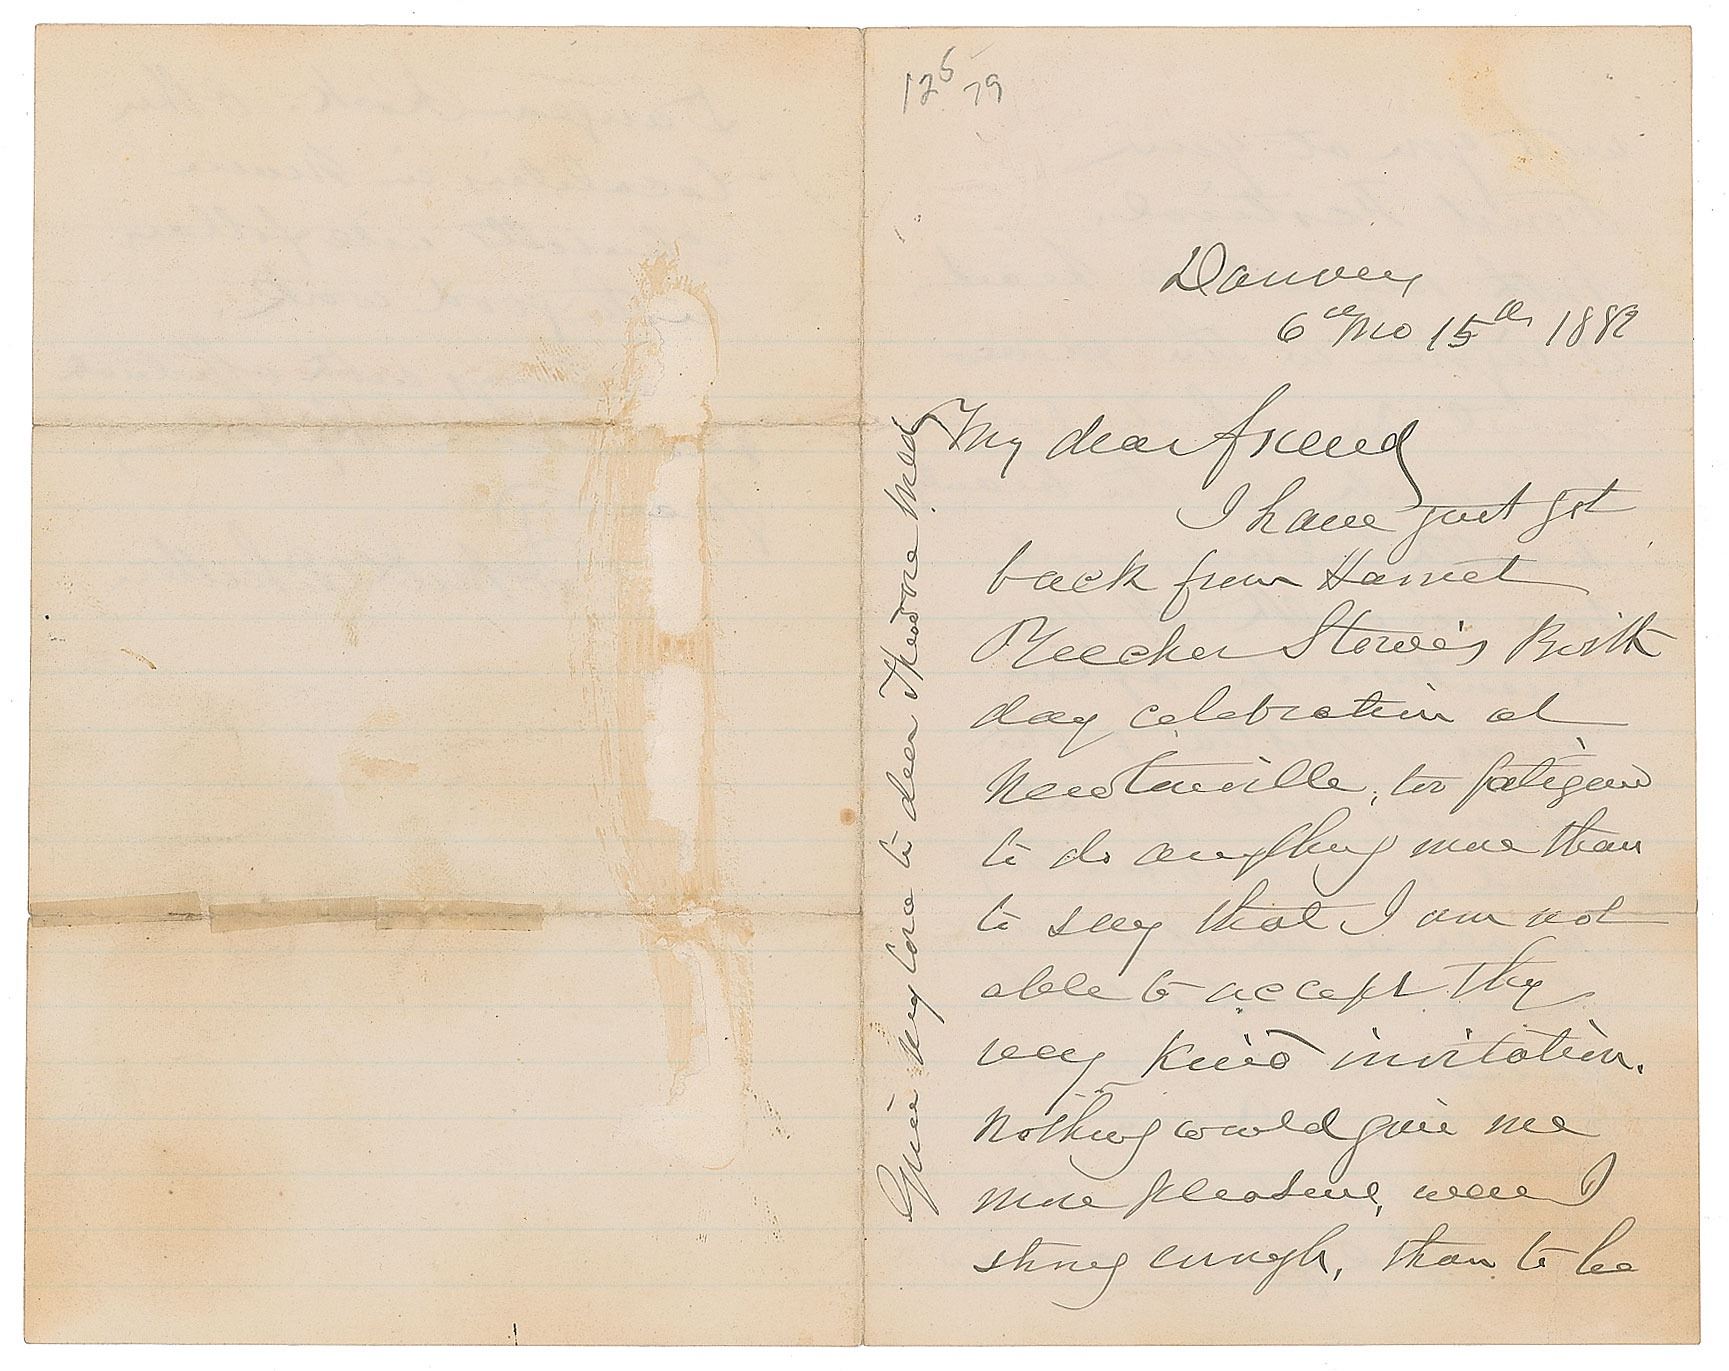 12 5 79
Danvers
6th Mo 15th 1882
My dear friend
I have just got
back from Harriet
Beecher Stowe's Birth
day celebration at
Newtonville, too fatigued
to do anything more than
to say that I am not
able to accept thy
very kind invitation.
Nothing would give me
more pleasure, were I
strong enough, than to be
Give my love to dear Theodore Weld